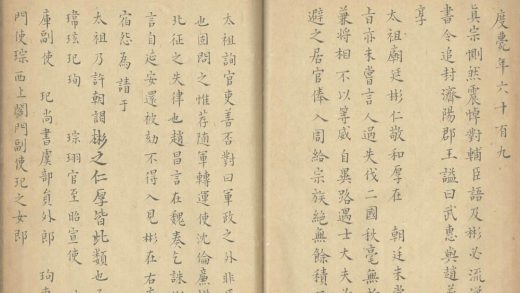 度薨年六十有九
真宗慟然震悼對輔臣語及彬必流涕
書令追封濟陽郡王諡曰武惠與趙普
享
太祖廟廷彬仁敬和厚在 朝廷未嘗
旨亦未嘗言人過失伐二國秋毫無所
兼將相不以等威自異路遇士大夫
避之居官俸入周給宗族絕無餘積
太祖詢官吏善否對曰軍政之外非
也固問之惟荐随軍轉運使沈倫廉
北征之失律也趙昌言在魏奏乞誅
言自延安還被劾不得入見彬在右
宿怨為請于
太祖乃許朝謁彬之仁厚皆此類也
瑋玹玘珣 琮珝官至昭宣使
庫副使 玘尚書虞部員外郎 珣
門使琮西上閤門副使玘之女即